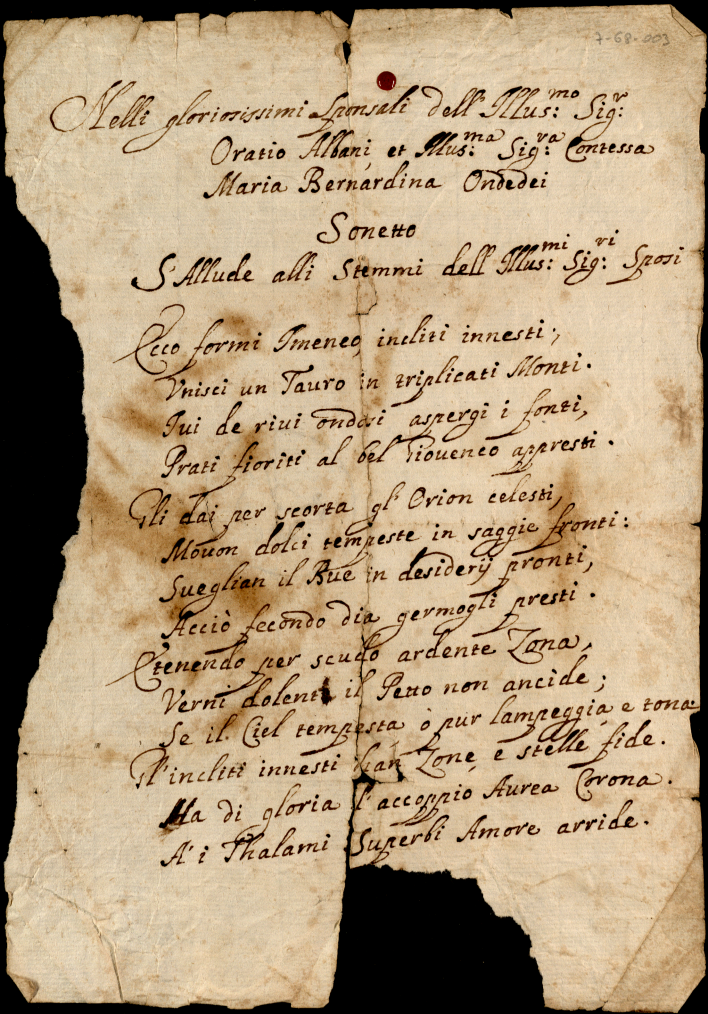 7-68-003
Nelli gloriosissimi Sponsali dell' Illus:mo Sigr:
Oratio Albani, et Illus:ma Sig:ra Contessa
Maria Bernardina Ondedei
Sonetto
S'Allude alli Stemmi dell' Illus:mi Sig:ri Sposi
Ecco formi Imeneo, incliti innesti;
Vnisci un Tauro in triplicati Monti.
Iui de riui ondosi aspergi i fonti,
Prati fioriti al bel Giouenco appresti.
Gli dai per scorta gl' Orion celesti,
Mouon dolci tempeste in saggie fronti:
Sueglian il Bue in desiderij pronti,
Acciò fecondo dia germogli presti.
E tenendo per scudo ardente Zona,
Verni dolenti il Petto non ancide;
Se il Ciel tempesta ò pur lampeggia e tona
Gl'incliti innesti han Zone, e stelle fide.
Ma di gloria l'accoppio Aurea Corona.
A' i Thalami Superbi Amore arride.